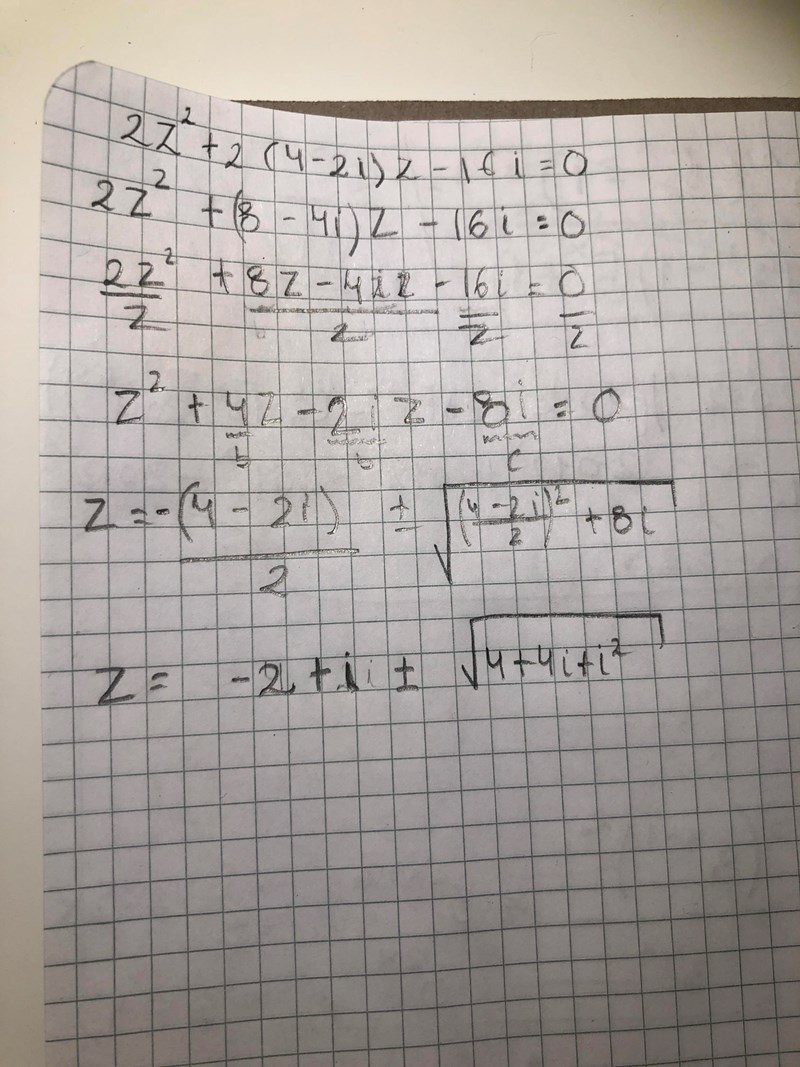 2z² + 2(4-2i)z - 16i = 0
2z² + (8 - 4i)z - 16i = 0
2z²/2 + 8z - 4iz/2 - 16i/2 = 0/2
z² + 4z - 2iz - 8i = 0
b b c
z = -(4 - 2i)/2 ± √((4-2i/2)² + 8i)
z = -2 + i ± √(4+4i+i²)